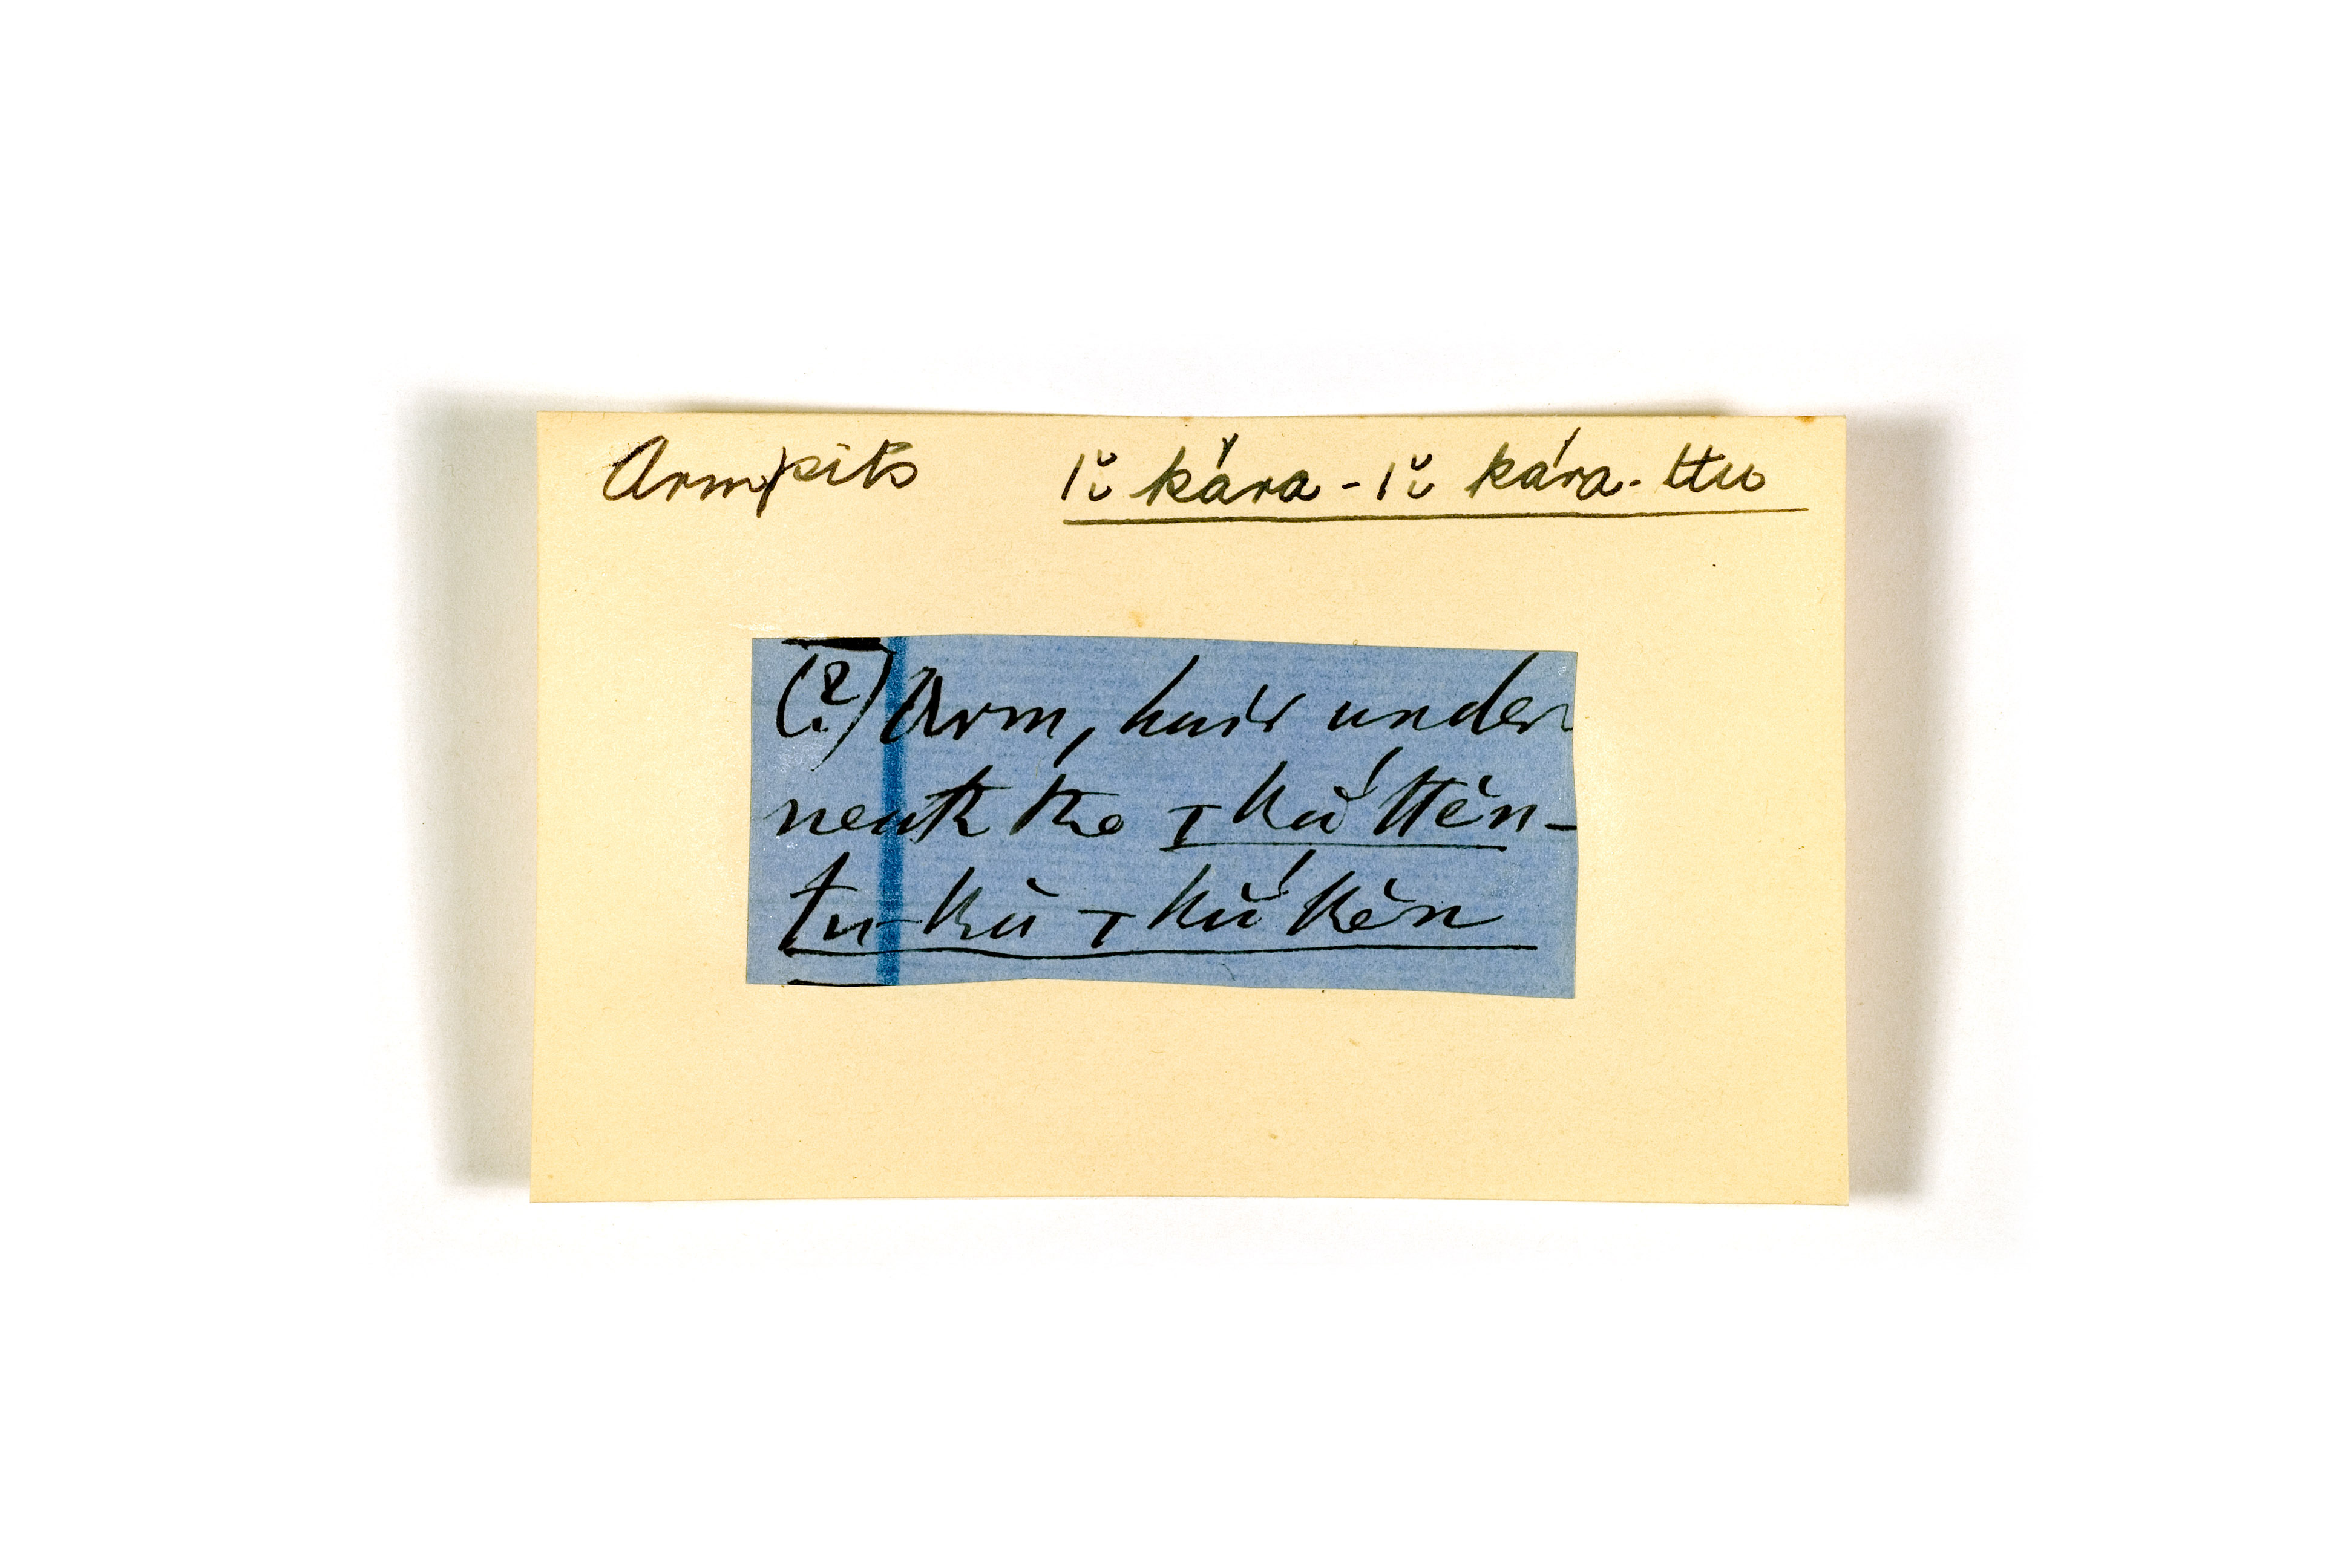 Armpits   1ŭ kára - 1ŭ kára-ttu
(?) Arm, hair under
neath the ɪkŭ́ttĕn-
tu-kŭ ɪkŭ́kĕn